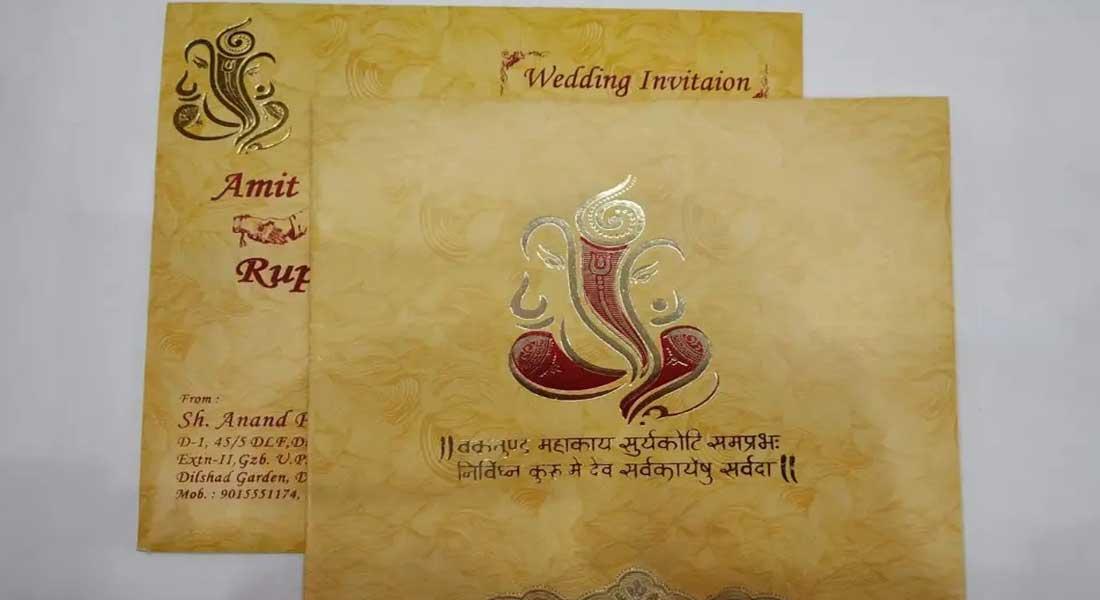 Wedding Invitaion
Amit
Rup
From :
Sh. Anand
D-1, 45/5 DLF,D
Extn-II,Gzb. U.P.
Dilshad Garden, D
Mob. : 9015551174,
॥वक्रतुण्ड महाकाय सुर्यकोटि समप्रभः
निर्विघ्न कुरु मे देव सर्वकार्येषु सर्वदा॥